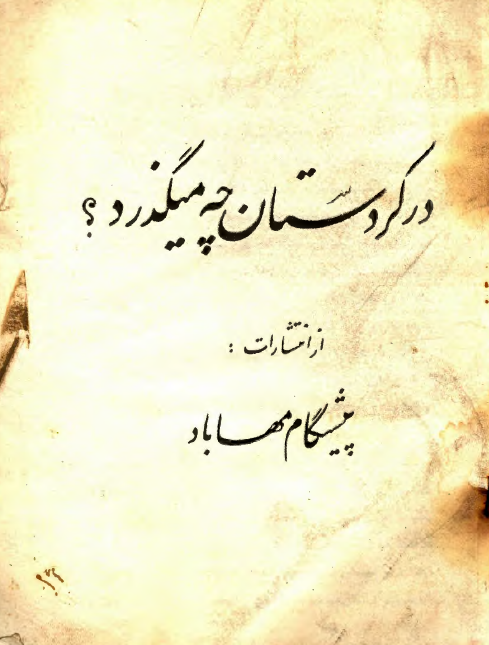 در کردستان چه میگذرد؟
از انتشارات :
پیشگام مهاباد